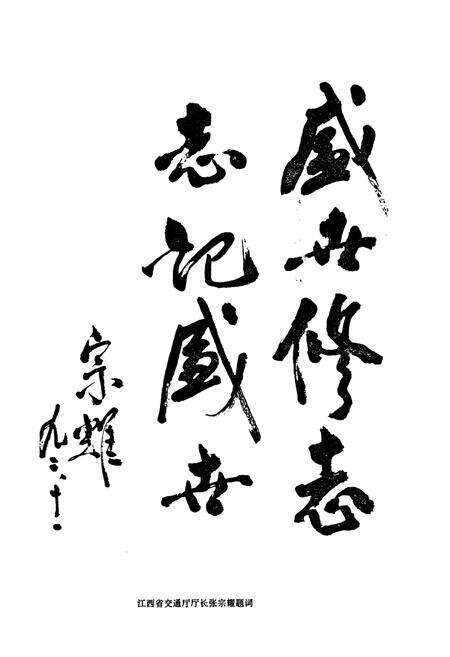 盛世修志
志记盛世
宗耀
九三、十一
江西省交通厅厅长张宗耀题词